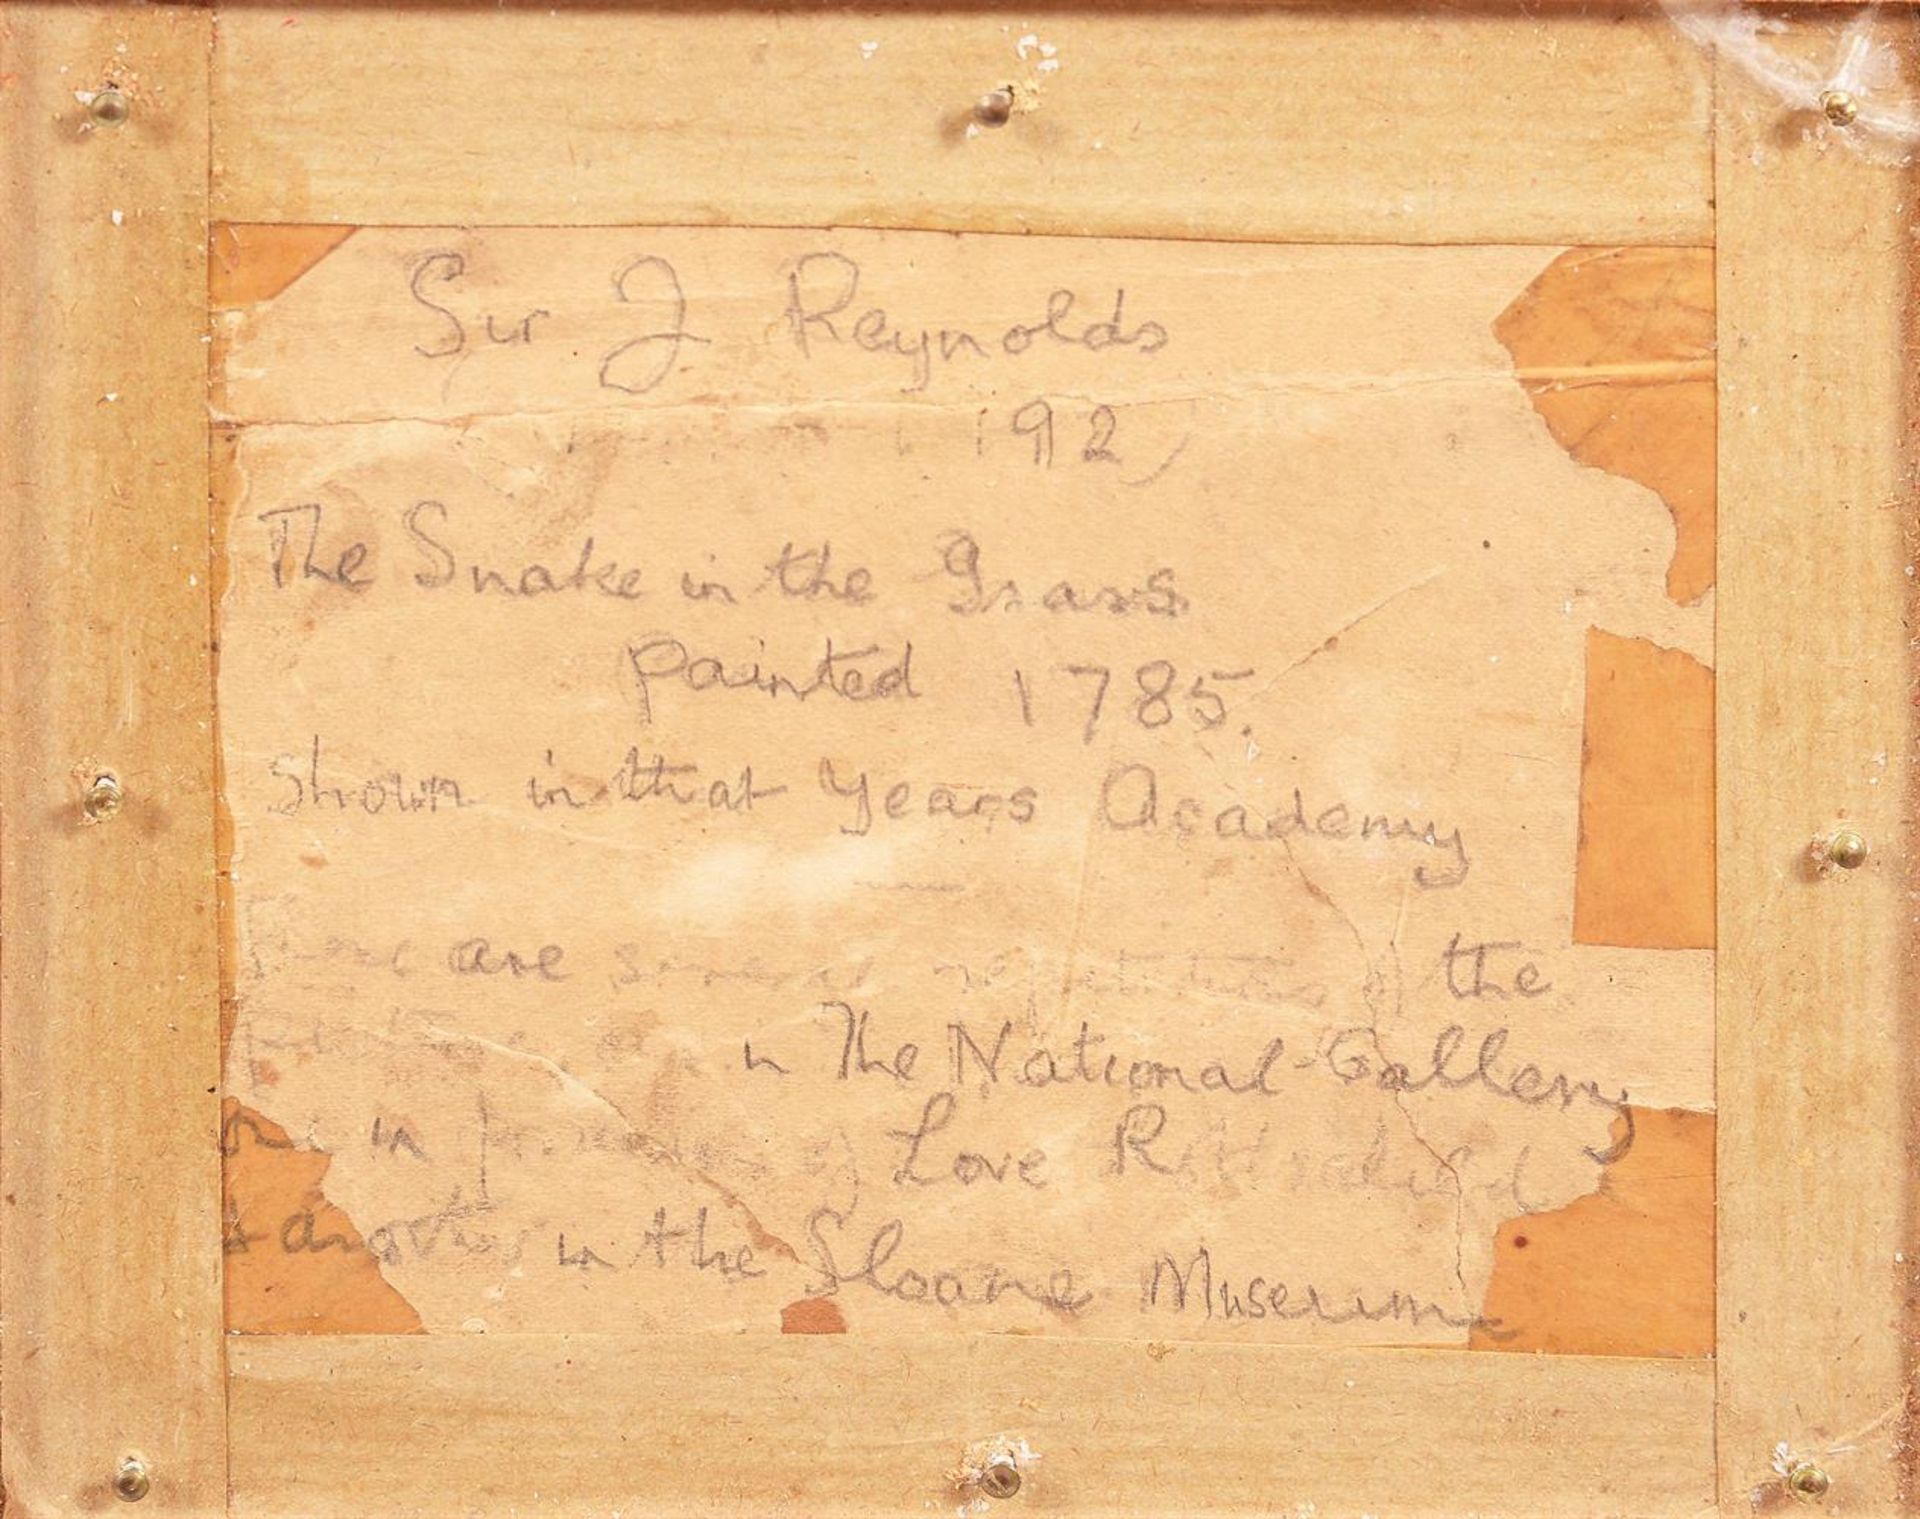 Sir J Reynolds
192
The Snake in the Grass
painted 1785.
Shown in that Years Academy
are several repetitions of the
in The National Gallery
one in Love
& another in the Sloane Museum